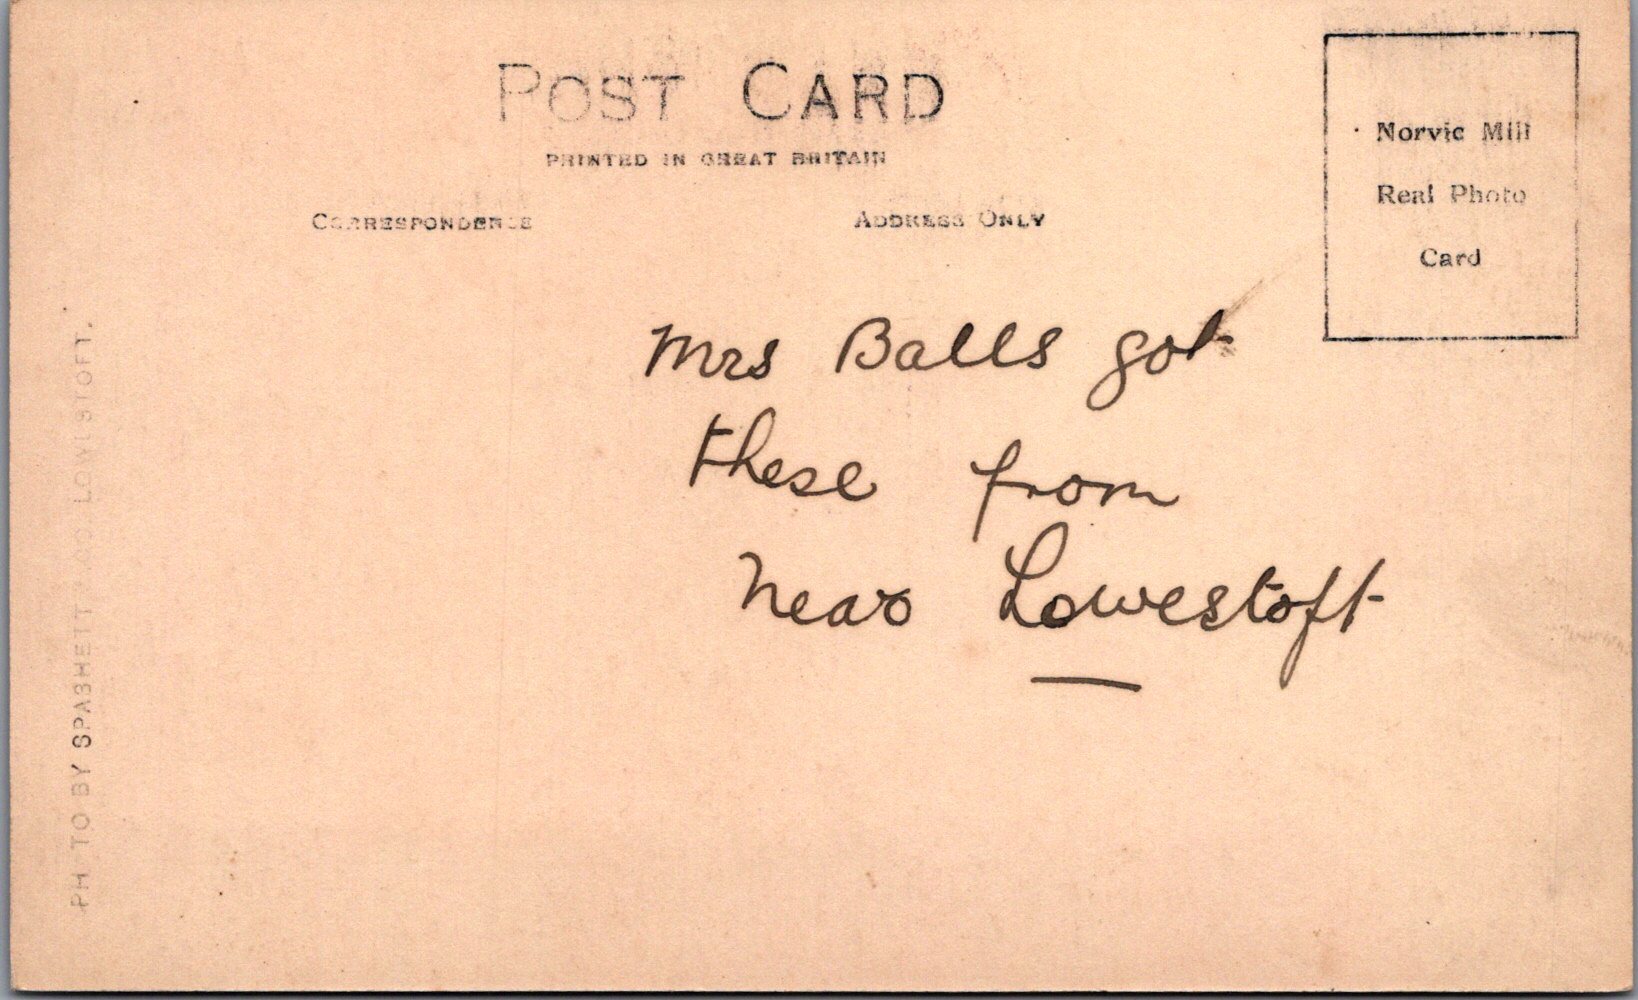 POST CARD
PRINTED IN GREAT BRITAIN
CORRESPONDENCE
ADDRESS ONLY
Norvic Mill
Real Photo
Card
Mrs Balls got
these from
near Lowestoft
PHOTO BY SPASHETT & CO. LOWESTOFT.